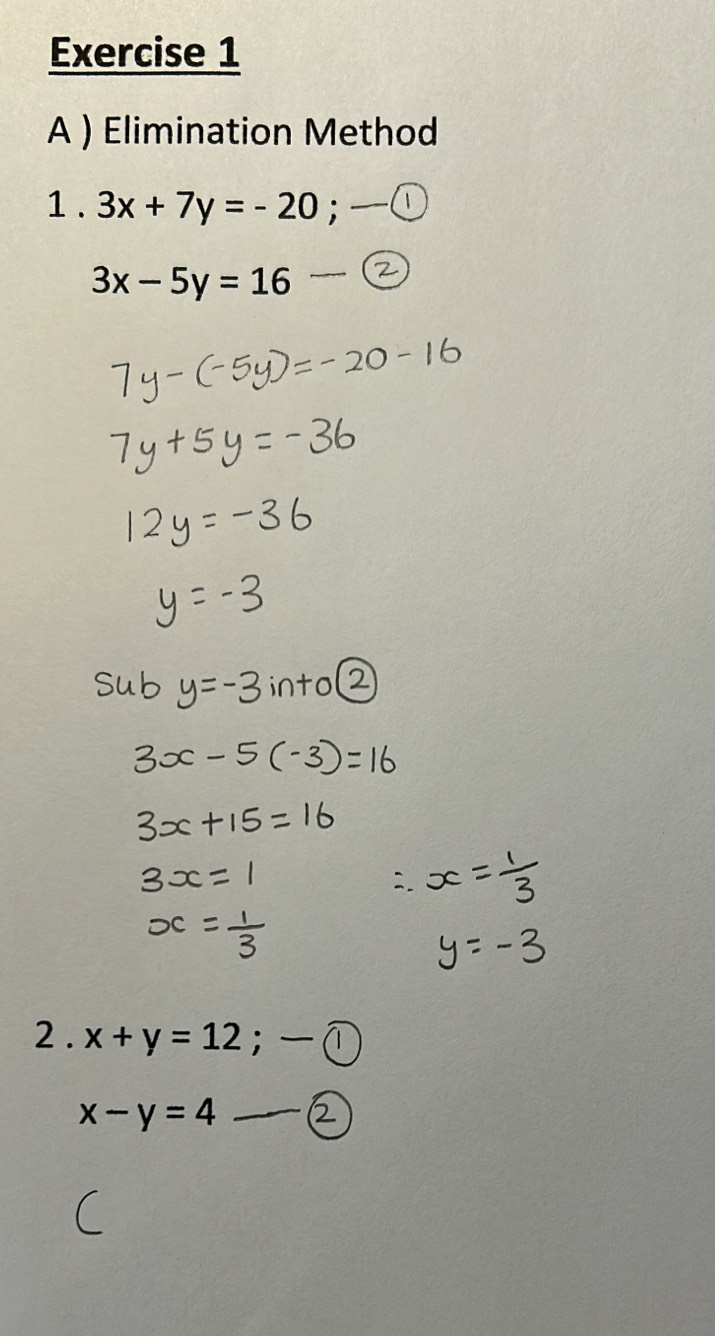 Exercise 1
A ) Elimination Method
1 . 3x + 7y = - 20 ; — ①
3x – 5y = 16 — ②
7y - (-5y) = -20 - 16
7y + 5y = -36
12y = -36
y = -3
Sub y = -3 into ②
3x - 5 (-3) = 16
3x + 15 = 16
3x = 1
x = 1/3
∴ x = 1/3
y = -3
2 . x + y = 12 ; — ①
x – y = 4 — ②
(